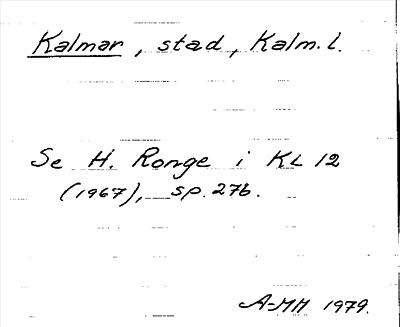 Kalmar, stad, Kalm. l.
Se H. Ronge i KL 12
(1967), sp. 276.
A-MH 1979.